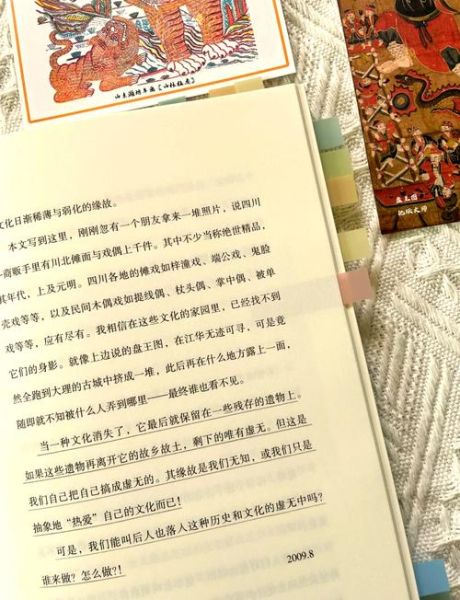 山东潍坊年画《山林猛虎》
盘王图
地域大师
文化日渐稀薄与弱化的缘故。
本文写到这里，刚刚忽有一个朋友拿来一堆照片，说四川
商贩手里有川北傩面与戏偶上千件。其中不少当称绝世精品，
其年代，上及元明。四川各地的傩戏如梓潼戏、端公戏、鬼脸
壳戏等等，以及民间木偶戏如提线偶、杖头偶、掌中偶、被单
戏等等，应有尽有。我相信在这些文化的家园里，已经找不到
它们的身影。就像上边说的盘王图，在江华无迹可寻，可是竟
然全跑到大理的古城中挤成一堆，此后再在什么地方露上一面，
随即就不知被什么人弄到哪里——最终谁也看不见。
当一种文化消失了，它最后就保留在一些残存的遗物上。
如果这些遗物再离开它的故乡故土，剩下的唯有虚无。但这是
我们自己把自己搞成虚无的。其缘故是我们无知，或我们只是
抽象地“热爱”自己的文化而已！
可是，我们能叫后人也落入这种历史和文化的虚无中吗？
谁来做？怎么做？！
2009.8